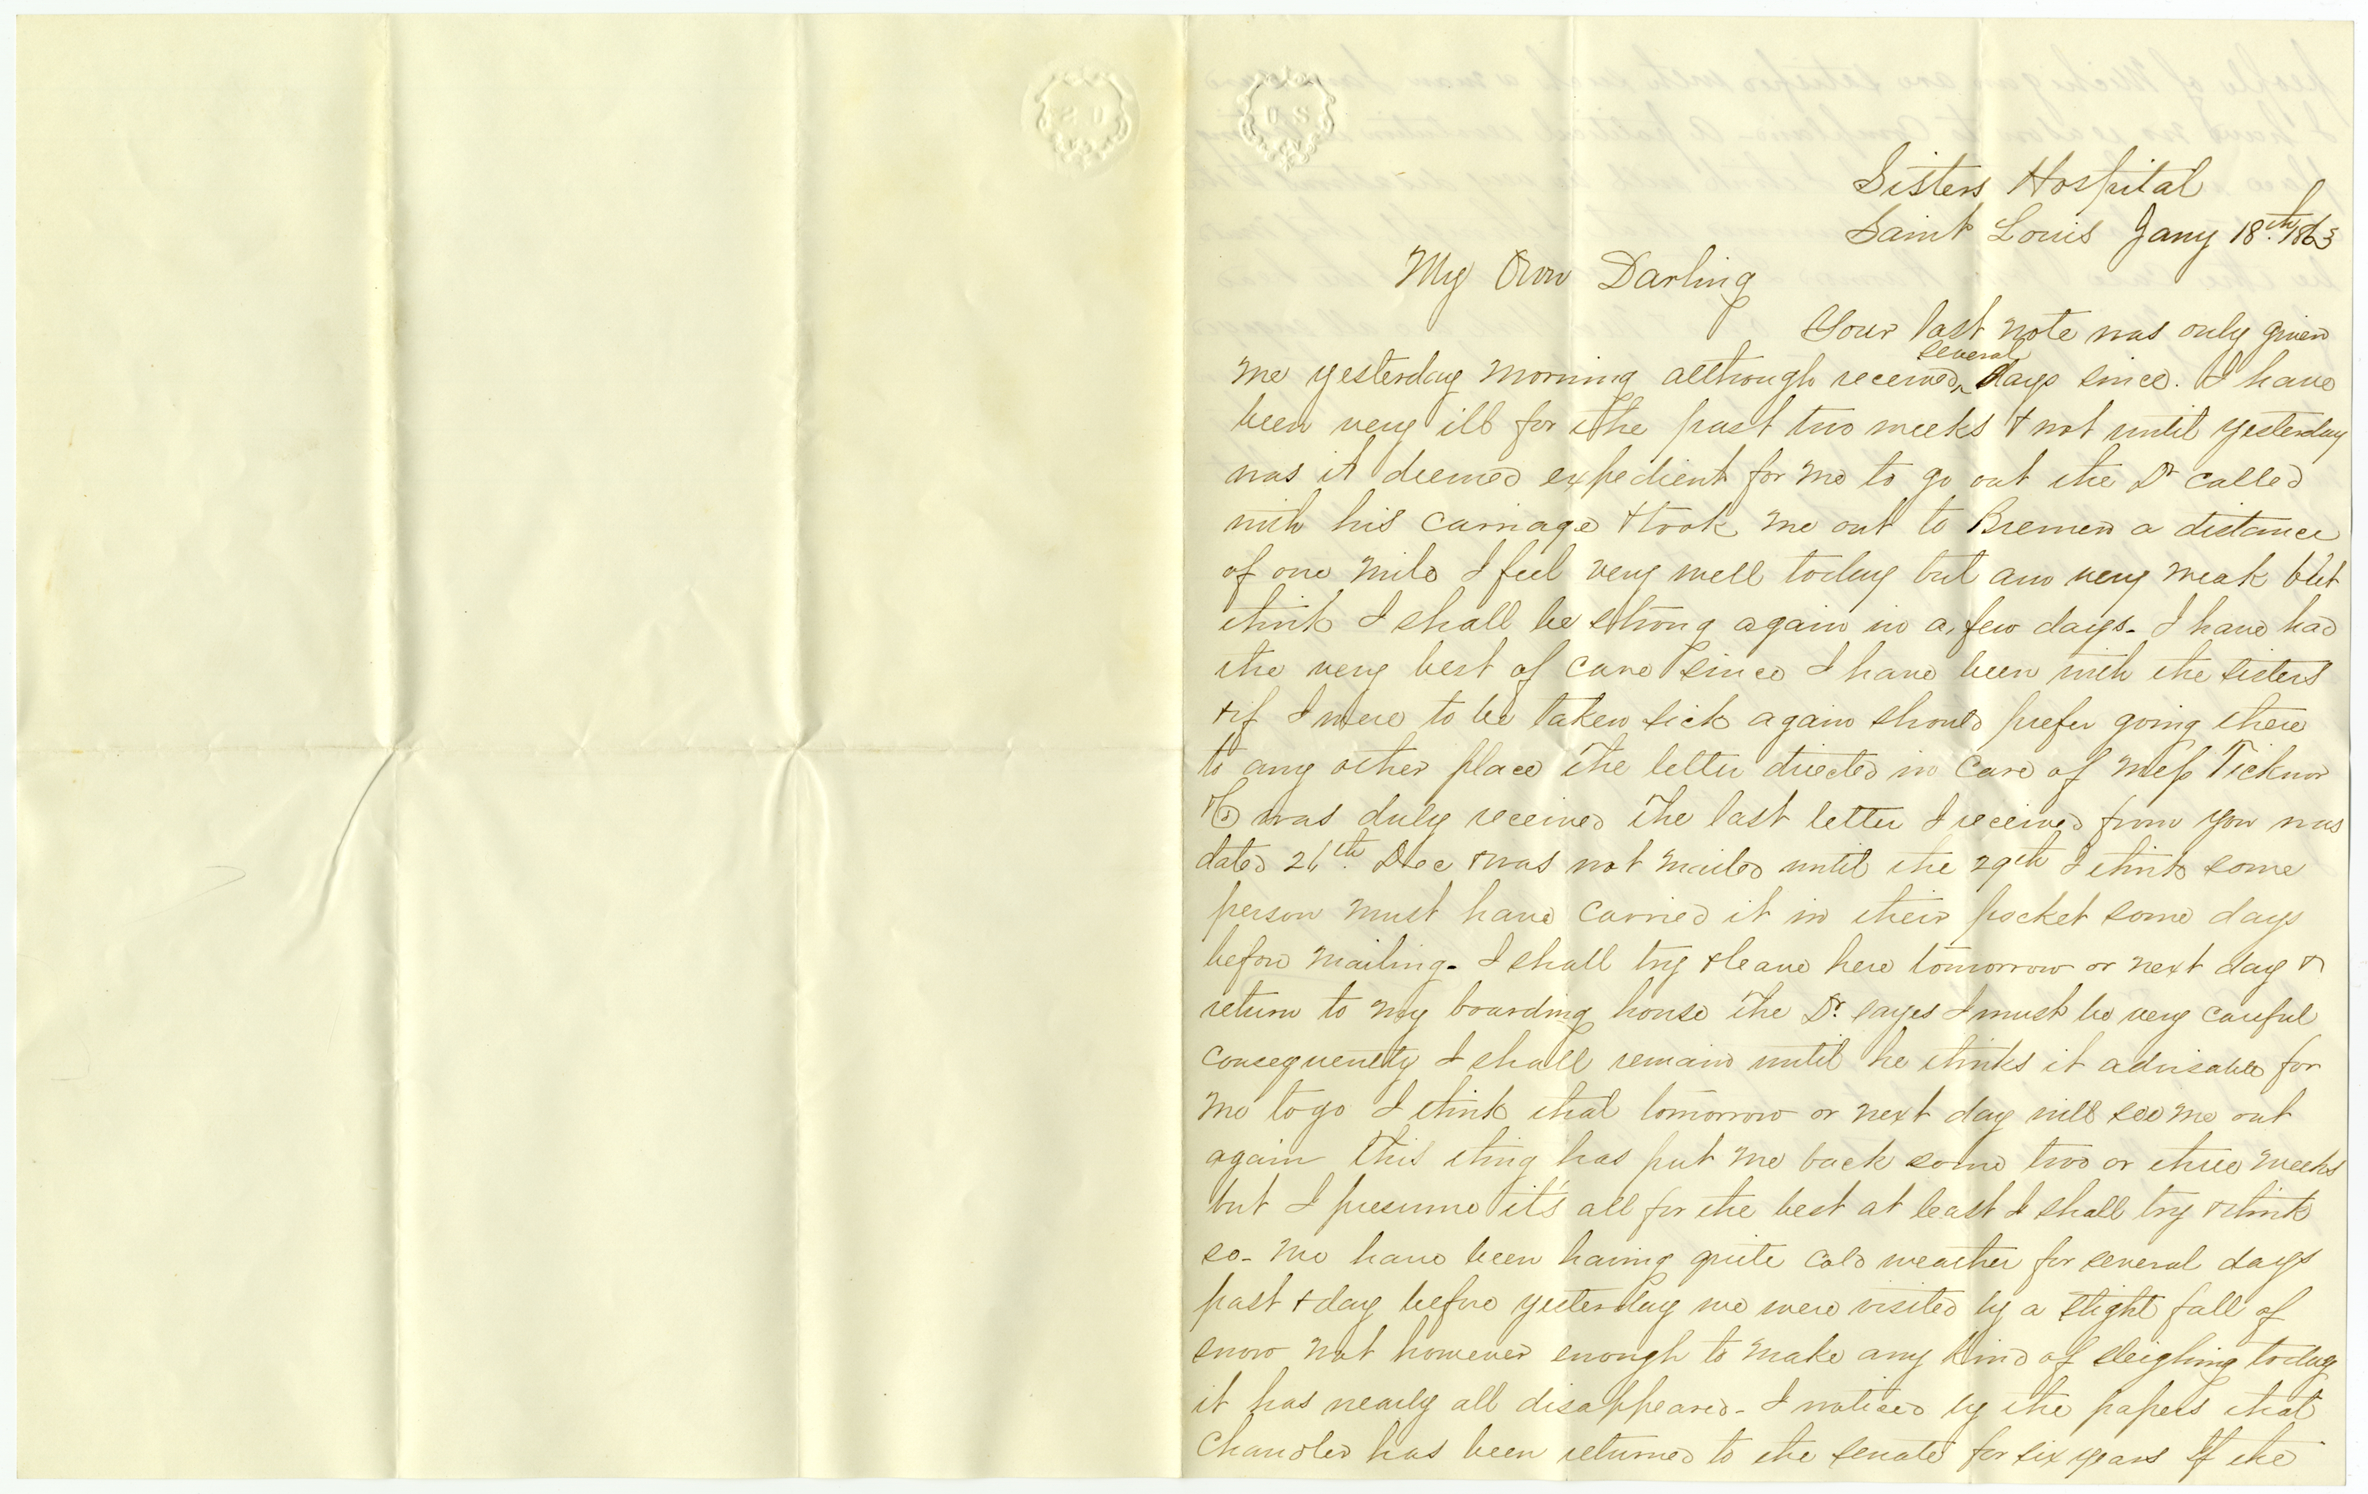 U S
Sisters Hospital
Saint Louis Jany 18th. 1863
My Own Darling
Your last note was only given
me yesterday morning although received several days since. I have
been very ill for the past two weeks & not until yesterday
was it deemed expedient for me to go out the Dr called
with his carriage & took me out to Bremen a distance
of one mile I feel very well today but am very weak but
think I shall be strong again in a few days - I have had
the very best of care since I have been with the sisters
& if I were to be taken sick again should prefer going there
to any other place The letter directed in care of Mess Ticknor
& Co was duly received The last letter I received from you was
dated 21th. Dec & was not mailed until the 29th I think some
person must have carried it in their pocket some days
before mailing - I shall try & leave here tomorrow or next day &
return to my boarding house The Dr. sayes I must be very careful
consequently I shall remain until he thinks it advisable for
me to go I think that tomorrow or next day will see me out
again This thing has put me back some two or three weeks
but I presume it's all for the best at least I shall try & think
so - We have been having quite cold weather for several days
past & day before yesterday we were visited by a slight fall of
snow not however enough to make any kind of sleighing today
it has nearly all disappeared - I noticed by the papers that
Chandler has been returned to the senate for six years If the